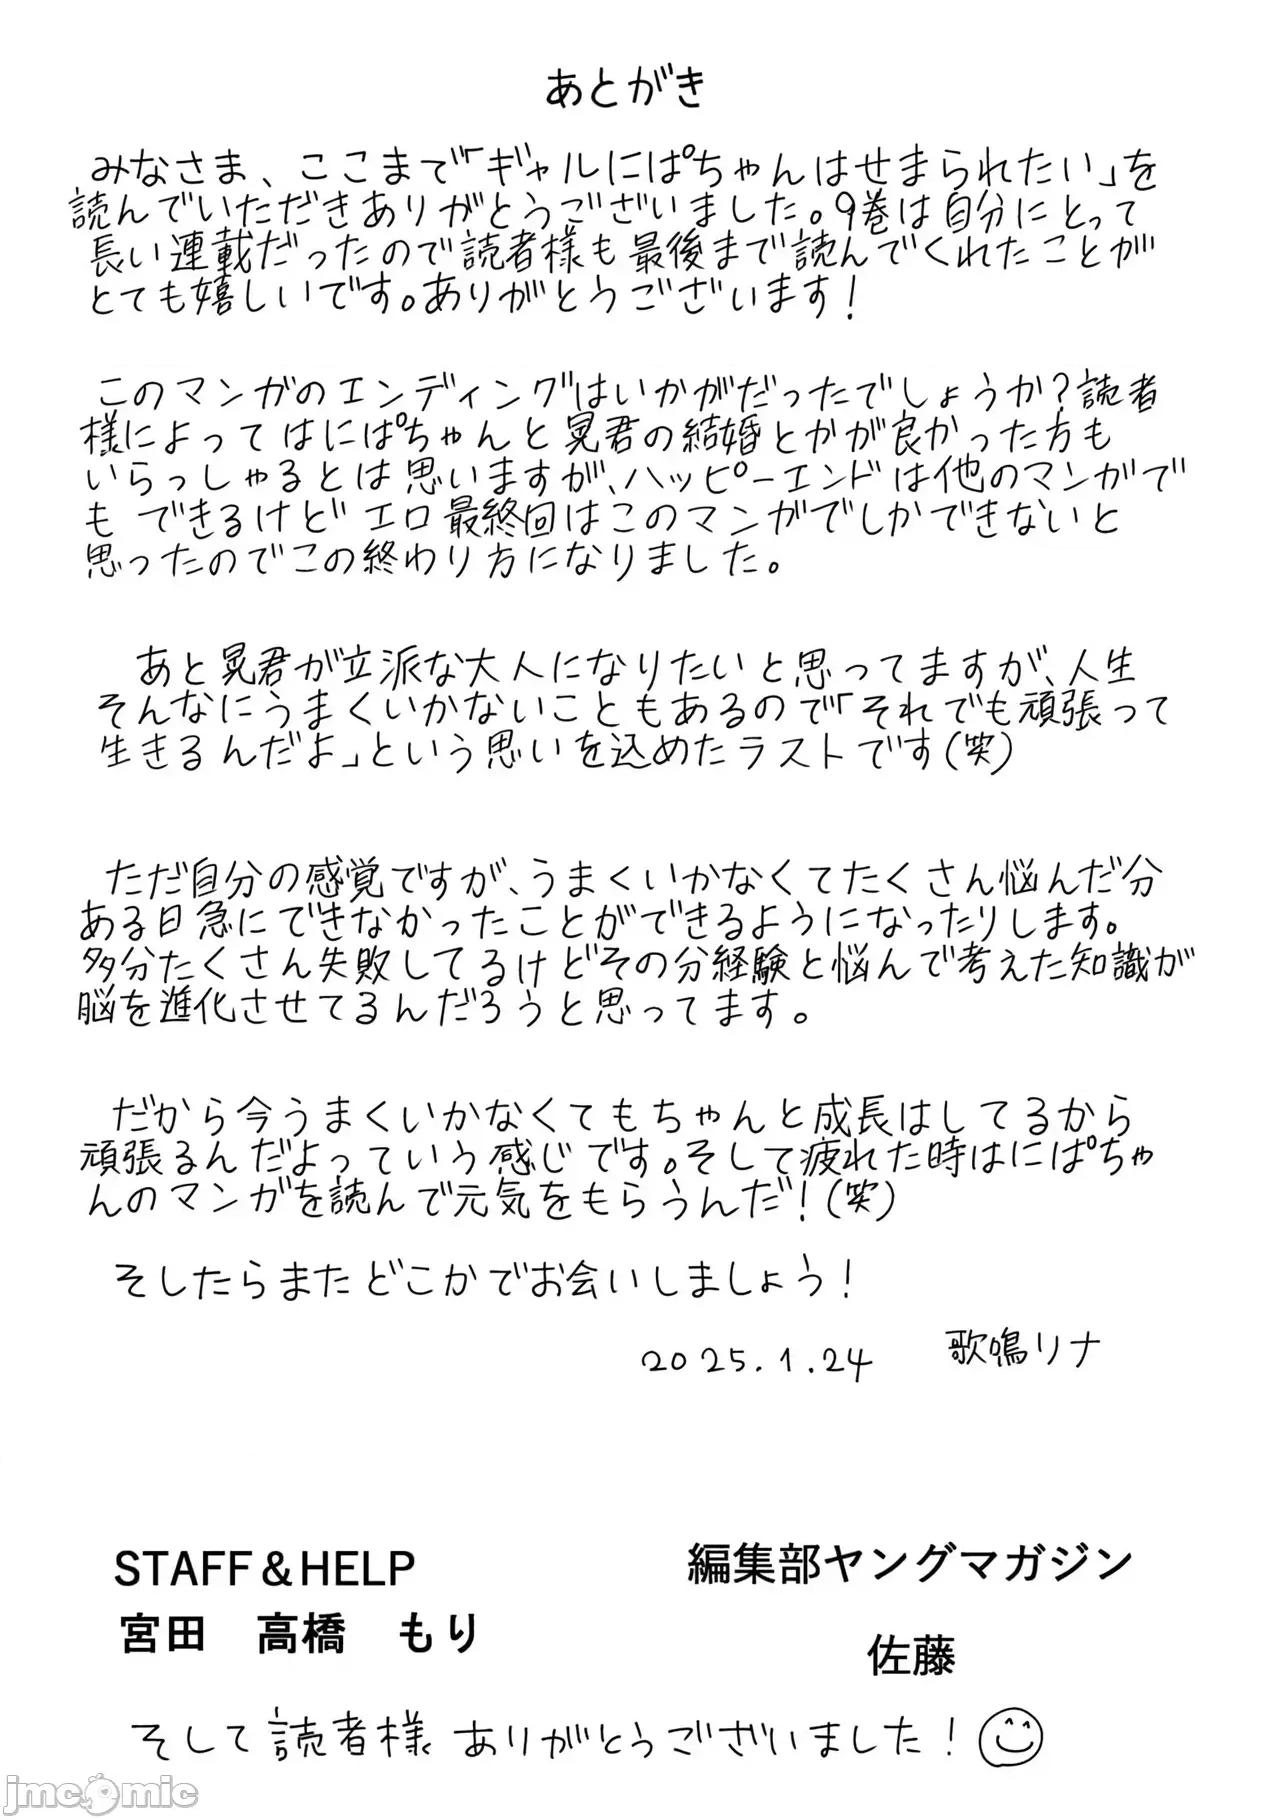 あとがき
みなさま、ここまで「ギャルにぱちゃんはせまられたい」を
読んでいただきありがとうございました。9巻は自分にとって
長い連載だったので読者様も最後まで読んでくれたことが
とても嬉しいです。ありがとうございます!
このマンガのエンディングはいかがだったでしょうか?読者
様によってはにぱちゃんと晃君の結婚とかが良かった方も
いらっしゃるとは思いますが、ハッピーエンドは他のマンガで
も できるけど エロ最終回はこのマンガでしかできないと
思ったのでこの終わり方になりました。
あと晃君が立派な大人になりたいと思ってますが、人生
そんなにうまくいかないこともあるので「それでも頑張って
生きるんだよ」という思いを込めたラストです(笑)
ただ自分の感覚ですが、うまくいかなくてたくさん悩んだ分
ある日急にできなかったことができるようになったりします。
多分たくさん失敗してるけどその分経験と悩んで考えた知識が
脳を進化させてるんだろうと思ってます。
だから今うまくいかなくてもちゃんと成長はしてるから
頑張るんだよっていう感じです。そして疲れた時はにぱちゃ
んのマンガを読んで元気をもらうんだ!(笑)
そしたらまたどこかでお会いしましょう!
2025.1.24 歌鳴リナ
STAFF&HELP
宮田 高橋 もり
編集部ヤングマガジン
佐藤
そして読者様 ありがとうございました!
jmcomic